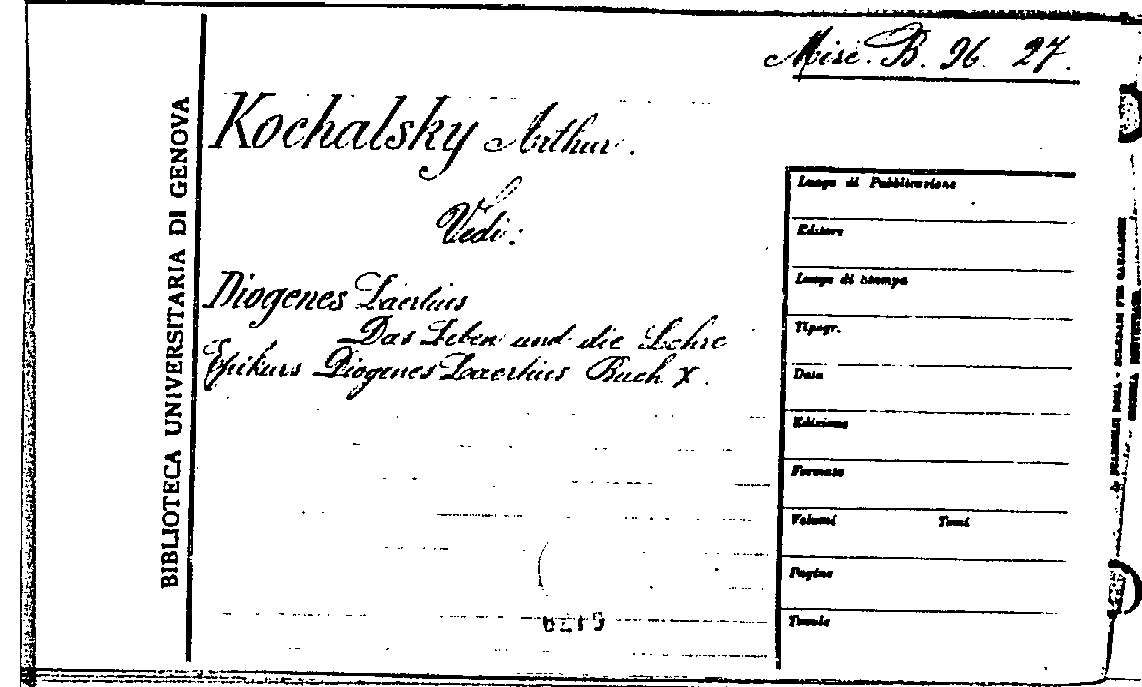 Misc. B. 96. 27.
BIBLIOTECA UNIVERSITARIA DI GENOVA
Kochalsky Arthur.
Vedi:
Diogenes Laertius
Das Leben und die Lehre
Epikurs Diogenes Laertius Buch X.
Luogo di Pubblicazione
Editore
Luogo di stampa
Tipogr.
Data
Edizione
Formato
Volumi Tomi
Pagine
Tavole